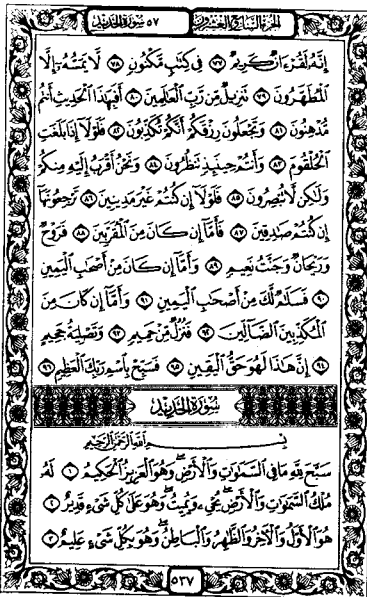 الجزء السابع والعشرون ٥٧ سورة الحديد
إِنَّهُ لَقُرْءَانٌ كَرِيمٌ ٧٧ فِي كِتَٰبٍ مَّكْنُونٍ ٧٨ لَّا يَمَسُّهُۥٓ إِلَّا
ٱلْمُطَهَّرُونَ ٧٩ تَنزِيلٌ مِّن رَّبِّ ٱلْعَٰلَمِينَ ٨٠ أَفَبِهَٰذَا ٱلْحَدِيثِ أَنتُم
مُّدْهِنُونَ ٨١ وَتَجْعَلُونَ رِزْقَكُمْ أَنَّكُمْ تُكَذِّبُونَ ٨٢ فَلَوْلَآ إِذَا بَلَغَتِ
ٱلْحُلْقُومَ ٨٣ وَأَنتُمْ حِينَئِذٍ تَنظُرُونَ ٨٤ وَنَحْنُ أَقْرَبُ إِلَيْهِ مِنكُمْ
وَلَٰكِن لَّا تُبْصِرُونَ ٨٥ فَلَوْلَآ إِن كُنتُمْ غَيْرَ مَدِينِينَ ٨٦ تَرْجِعُونَهَآ
إِن كُنتُمْ صَٰدِقِينَ ٨٧ فَأَمَّآ إِن كَانَ مِنَ ٱلْمُقَرَّبِينَ ٨٨ فَرَوْحٌ
وَرَيْحَانٌ وَجَنَّتُ نَعِيمٍ ٨٩ وَأَمَّآ إِن كَانَ مِنْ أَصْحَٰبِ ٱلْيَمِينِ
٩٠ فَسَلَٰمٌ لَّكَ مِنْ أَصْحَٰبِ ٱلْيَمِينِ ٩١ وَأَمَّآ إِن كَانَ مِنَ
ٱلْمُكَذِّبِينَ ٱلضَّآلِّينَ ٩٢ فَنُزُلٌ مِّنْ حَمِيمٍ ٩٣ وَتَصْلِيَةُ جَحِيمٍ
٩٤ إِنَّ هَٰذَا لَهُوَ حَقُّ ٱلْيَقِينِ ٩٥ فَسَبِّحْ بِٱسْمِ رَبِّكَ ٱلْعَظِيمِ ٩٦
سورة الحديد
بِسْمِ ٱللَّهِ ٱلرَّحْمَٰنِ ٱلرَّحِيمِ
سَبَّحَ لِلَّهِ مَا فِي ٱلسَّمَٰوَٰتِ وَٱلْأَرْضِ وَهُوَ ٱلْعَزِيزُ ٱلْحَكِيمُ ١ لَهُۥ
مُلْكُ ٱلسَّمَٰوَٰتِ وَٱلْأَرْضِ يُحْيِۦ وَيُمِيتُ وَهُوَ عَلَىٰ كُلِّ شَيْءٍ قَدِيرٌ ٢
هُوَ ٱلْأَوَّلُ وَٱلْءَاخِرُ وَٱلظَّٰهِرُ وَٱلْبَاطِنُ وَهُوَ بِكُلِّ شَيْءٍ عَلِيمٌ ٣
٥٣٧